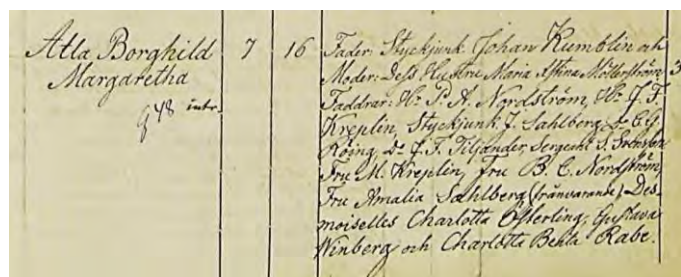 Atla Borghild 7 16 Fader: Styckjunk. Johan Kumblin och
Margaretha Moder: Dess Hustru Maria Stina Möllerström 3
g 48 intr. Faddrar: Hr P. A. Nordström, Hr J. F.
Kreplin, Styckjunk. J. Sahlberg, Do C. G.
Röing, Do J. F. Tiljander, Sergeant S. Svensson
Fru M. Kreplin, Fru B. C. Nordström,
Fru Amalia Sahlberg (frånvarande), Des-
moiselles Charlotta Österling, Gustava
Winberg och Charlotta Beata Rabe.